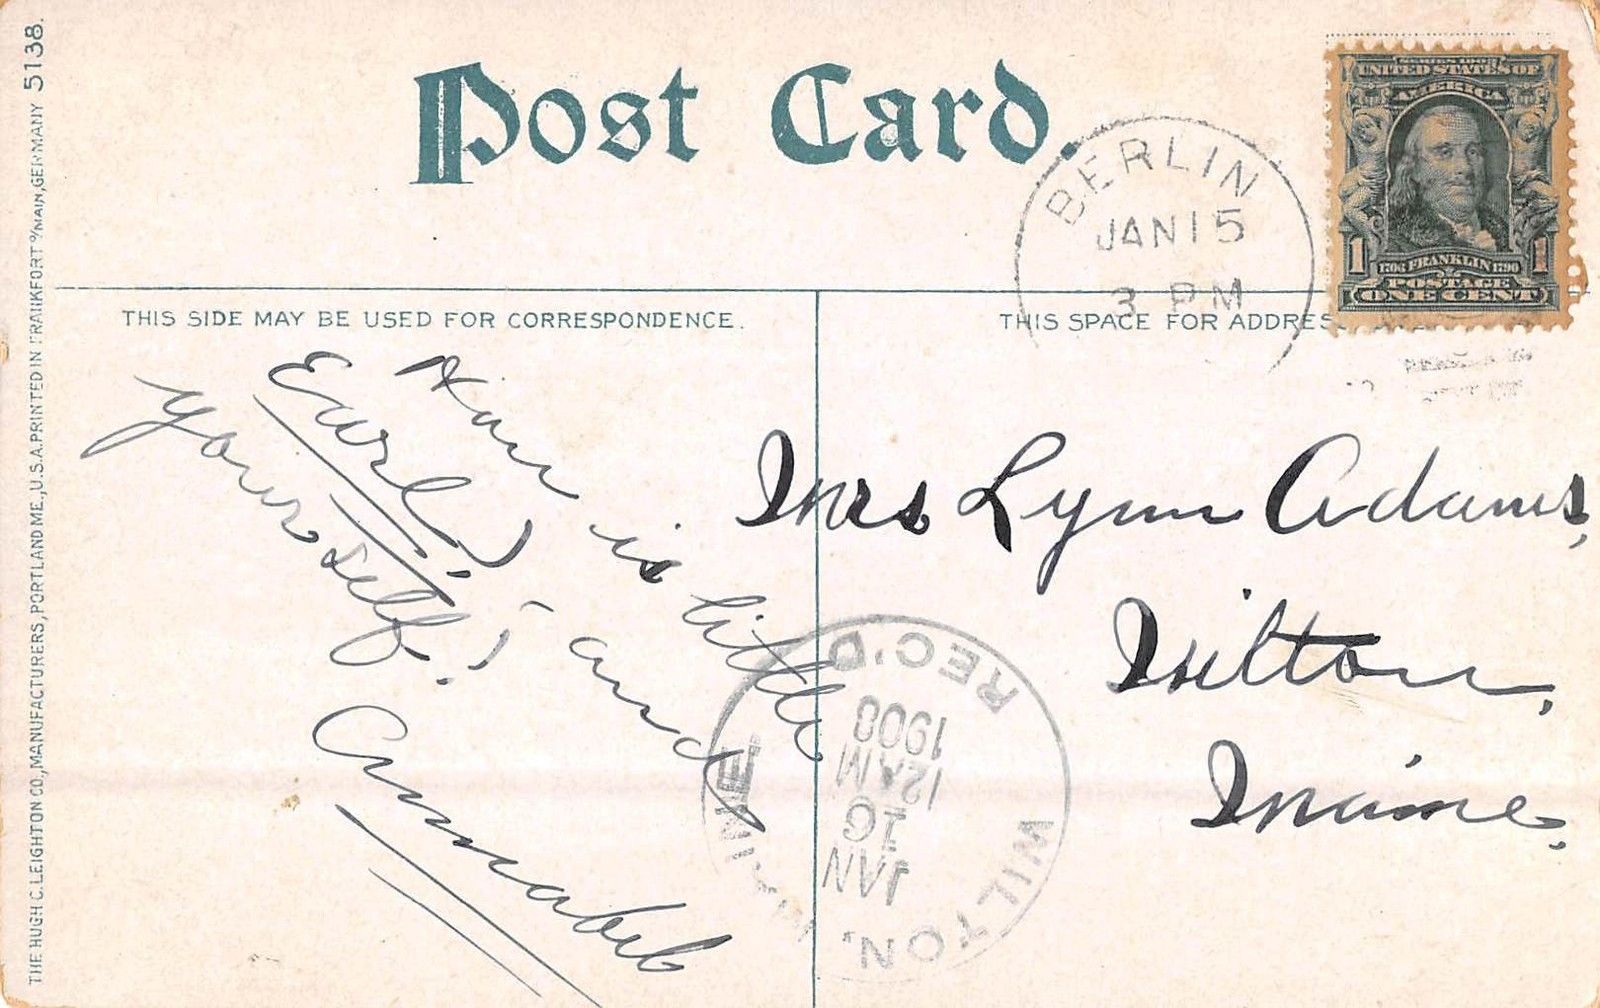 Post Card.
THE HUGH C. LEIGHTON CO., MANUFACTURERS, PORTLAND ME., U.S.A. PRINTED IN FRANKFORT o/MAIN, GERMANY 5138.
BERLIN
JAN 15
3 PM
SERIES 1902
UNITED STATES OF
AMERICA
1 1706 FRANKLIN 1790 1
POSTAGE
ONE CENT
THIS SIDE MAY BE USED FOR CORRESPONDENCE.
THIS SPACE FOR ADDRES
How is little
Earl, and
yourself!
Annabel
Mrs Lynn Adams,
Milton,
Maine.
MILTON, MAINE
JAN
16
12 AM
1908
REC'D